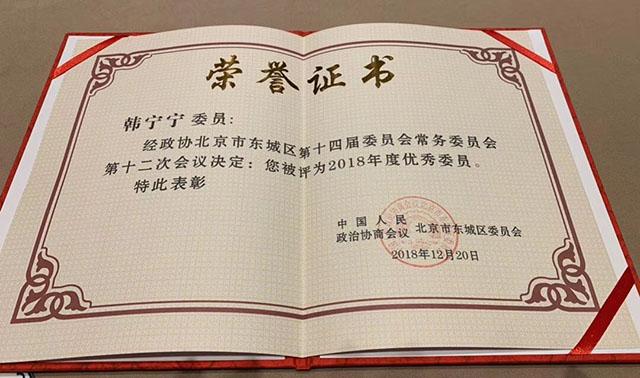 荣誉证书
韩宁宁委员：
经政协北京市东城区第十四届委员会常务委员会
第十二次会议决定：您被评为2018年度优秀委员。
特此表彰
中国人民
政治协商会议 北京市东城区委员会
2018年12月20日